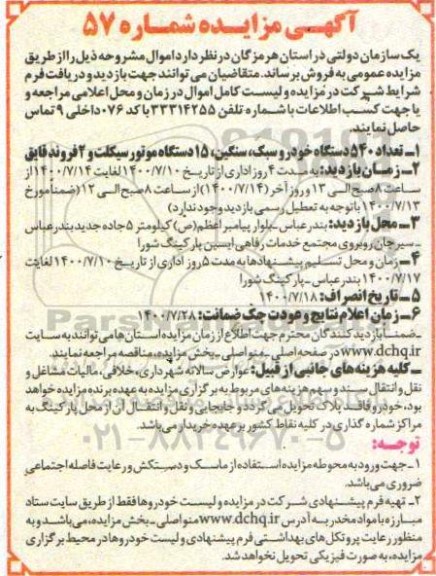 آگهی مزایده شماره ۵۷
یک سازمان دولتی در استان هرمزگان در نظر دارد اموال مشروحه ذیل را از طریق
مزایده عمومی به فروش برساند. متقاضیان می توانند جهت بازدید و دریافت فرم
شرایط شرکت در مزایده و لیست کامل اموال در زمان و محل اعلامی مراجعه و
یا جهت کسب اطلاعات با شماره تلفن ۳۳۳۱۴۲۵۵ با کد ۰۷۶ داخلی ۹ تماس
حاصل نمایند.
۱ـ تعداد ۵۴۰ دستگاه خودرو سبک، سنگین، ۱۵ دستگاه موتور سیکلت و ۲ فروند قایق
۲ـ زمان بازدید: به مدت ۴ روز اداری از تاریخ ۱۴۰۰/۷/۱۰ لغایت ۱۴۰۰/۷/۱۴ از
ساعت ۸ صبح الی ۱۳ و روز آخر (۱۴۰۰/۷/۱۴) از ساعت ۸ صبح الی ۱۲ (ضمناً مورخ
۱۴۰۰/۷/۱۳ با توجه به تعطیل رسمی بازدید وجود ندارد)
۳ـ محل بازدید: بندرعباس ـ بلوار پیامبر اعظم (ص) کیلومتر ۵ جاده جدید بندرعباس
ـ سیرجان روبروی مجتمع خدمات رفاهی ایسین پارکینگ شورا
۴ـ زمان و محل تسلیم پیشنهادها به مدت ۵ روز اداری از تاریخ ۱۴۰۰/۷/۱۰ لغایت
۱۴۰۰/۷/۱۷ بندرعباس ـ پارکینگ شورا
۵ـ تاریخ انصراف: ۱۴۰۰/۷/۱۸
۶ـ زمان اعلام نتایج و عودت چک ضمانت: ۱۴۰۰/۷/۲۸
ـ ضمناً بازدیدکنندگان محترم جهت اطلاع از زمان مزایده استان ها می توانند به سایت
www.dchq.ir در صفحه اصلی ـ منو اصلی ـ بخش مزایده، مناقصه مراجعه نمایند.
ـ کلیه هزینه های جانبی از قبیل: عوارض سالانه شهرداری، خلافی، مالیات مشاغل و
نقل و انتقال سند و سهم هزینه های مربوط به برگزاری مزایده به عهده برنده مزایده خواهد
بود، خودرو فاقد پلاک تحویل می گردد و جابجایی و نقل و انتقال آن از محل پارکینگ به
مراکز شماره گذاری در کلیه نقاط کشور بر عهده خریدار می باشد.
توجه:
۱ـ جهت ورود به محوطه مزایده استفاده از ماسک و دستکش و رعایت فاصله اجتماعی
ضروری می باشد.
۲ـ تهیه فرم پیشنهادی شرکت در مزایده و لیست خودروها فقط از طریق سایت ستاد
مبارزه با مواد مخدر به آدرس www.dchq.ir منو اصلی ـ بخش مزایده، می باشد و به
منظور رعایت پروتکل های بهداشتی فرم پیشنهادی و لیست خودروها در محیط برگزاری
مزایده، به صورت فیزیکی تحویل نخواهد شد.
۰۲۱-۸۸۳۴۹۶۷۰-۵